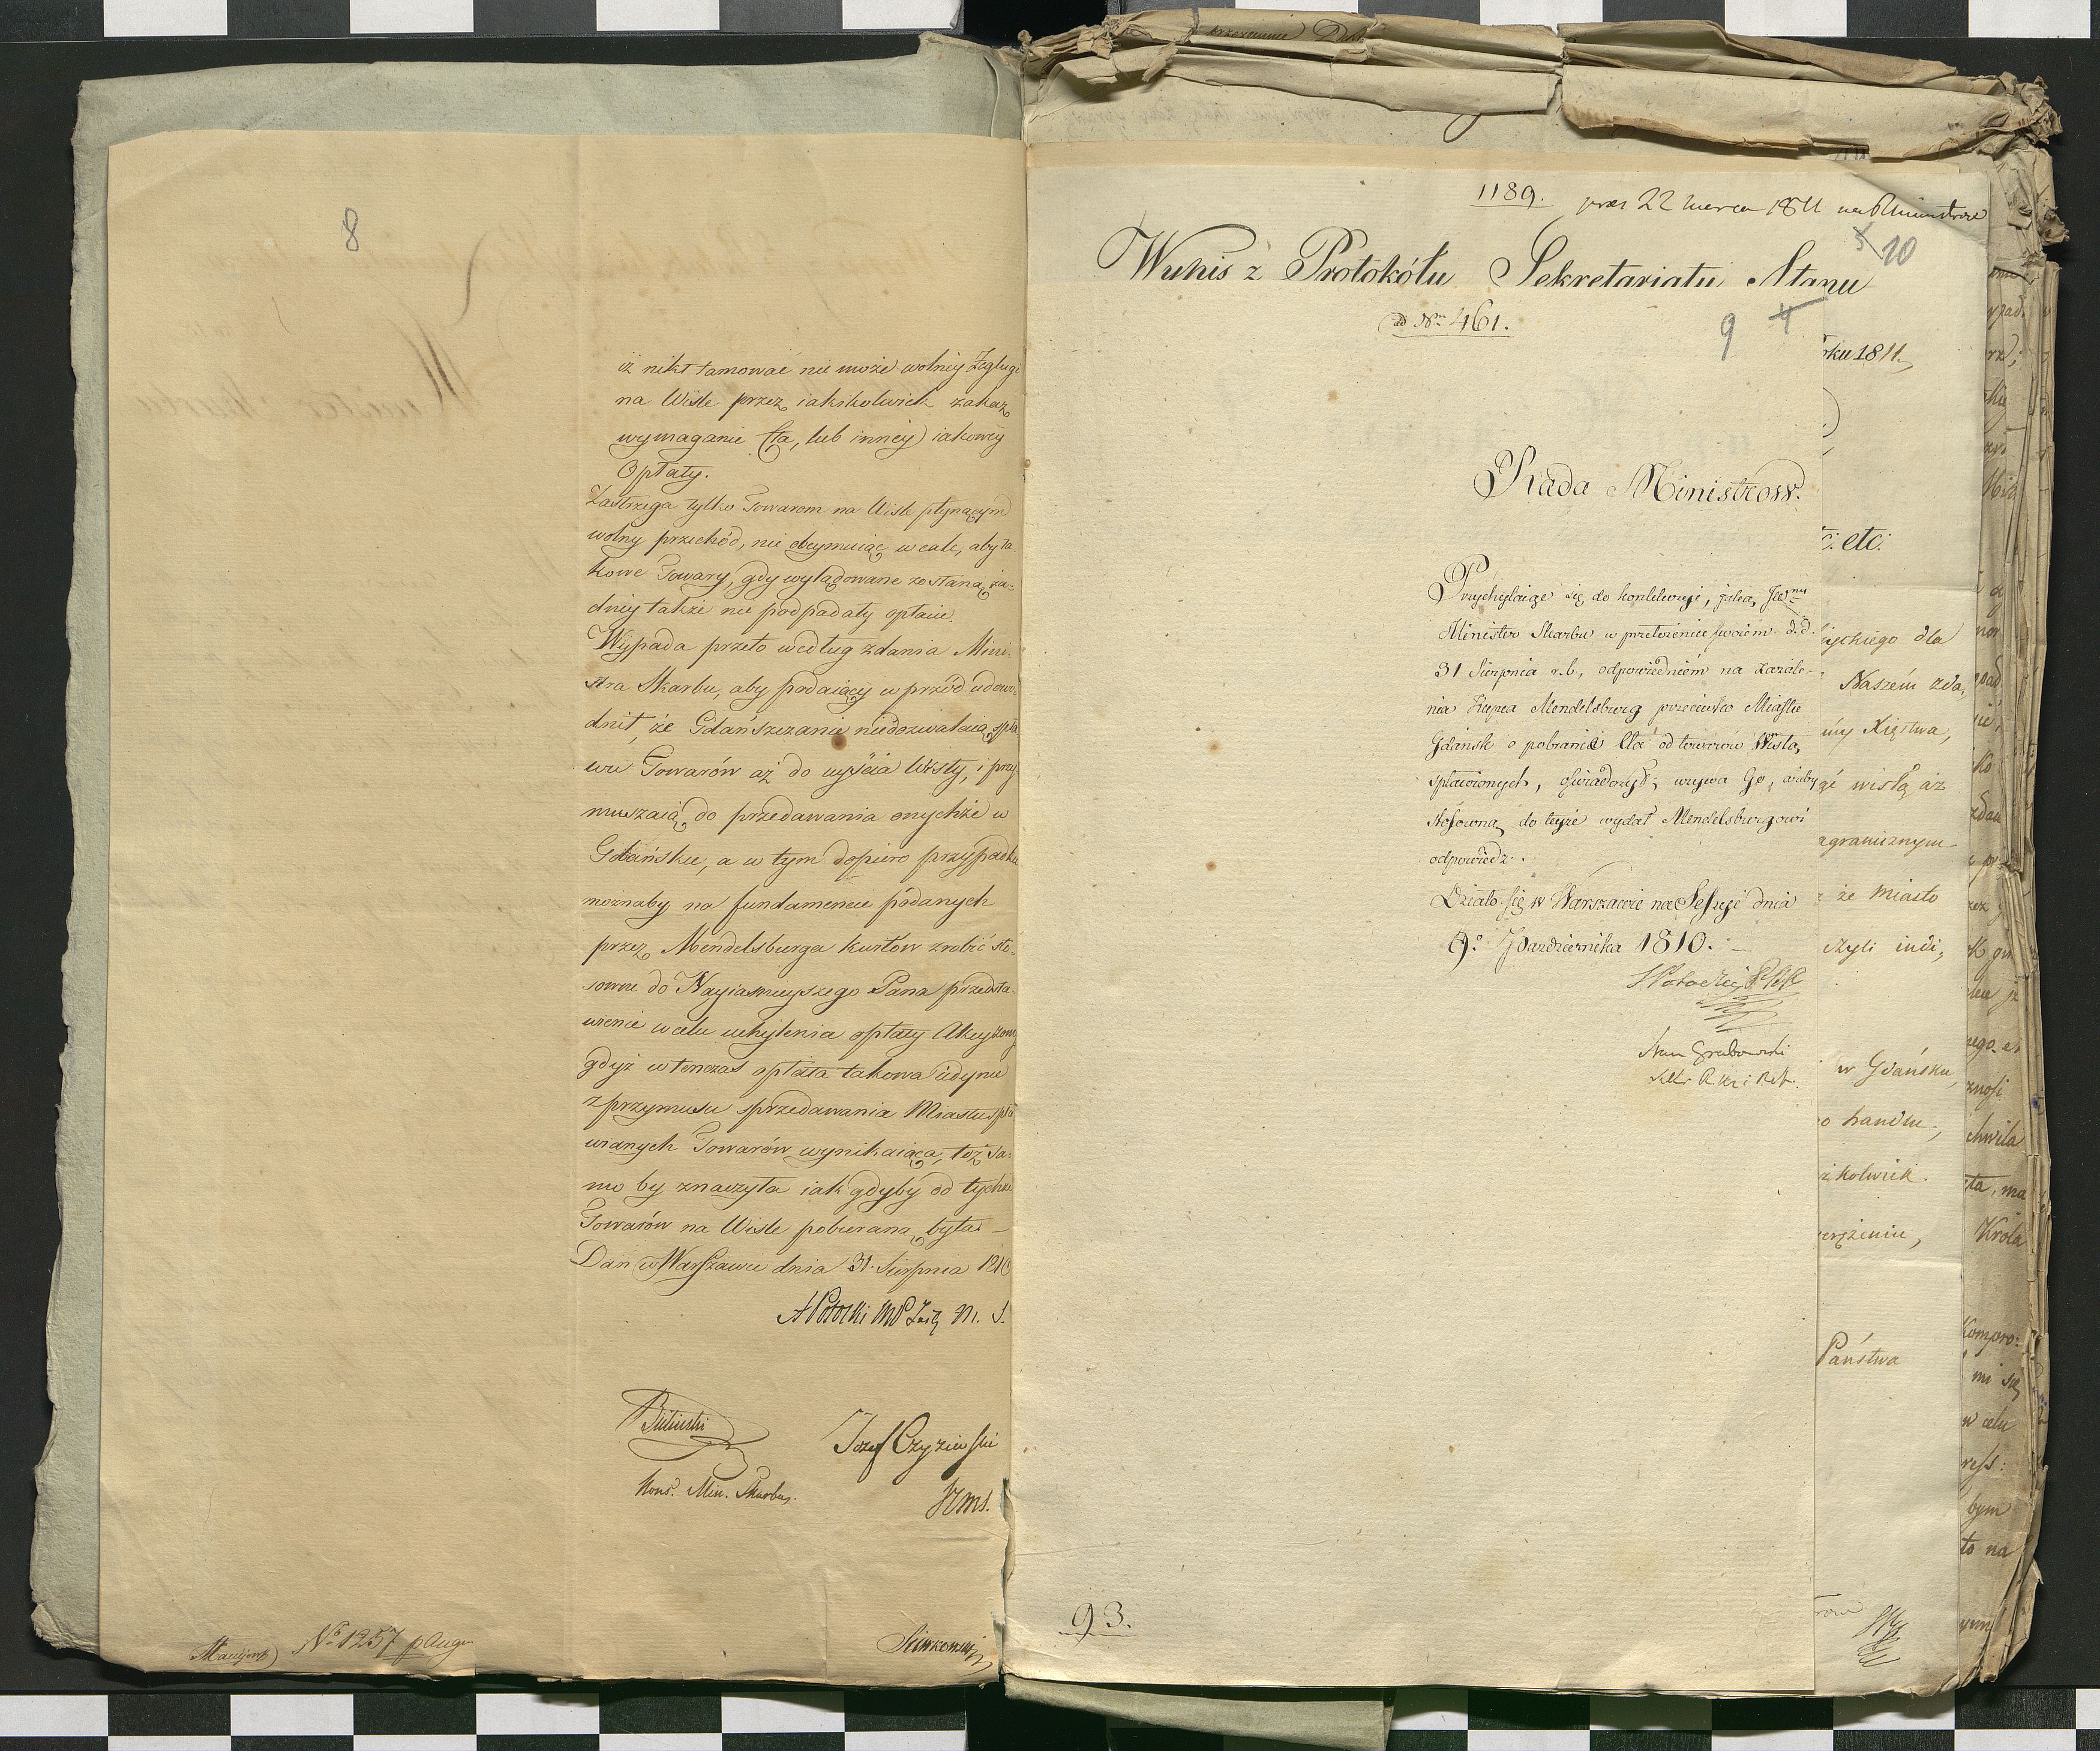 8
iż nikt tamować nie może wolney Żeglugi
na Wiśle przez iakikolwiek zakaz
wymaganie Cła, lub inney iakowey
Opłaty.
Zastrzega tylko Towarom na Wiśle płynącym
wolny przechód, nie obeymuiąc wcale, aby ta-
kowe Towary, gdy wylądowane zostaną, ża-
dney także nie podpadały opłacie.
Wypada przeto według zdania Mini-
stra Skarbu, aby podaiący wprzód udowo-
dnił, że Gdańszczanie niedozwalaią spła-
wu Towarów aż do uyścia Wisły, i przy-
muszaią do przedawania onychże w
Gdańsku, a w tym dopiero przypadku
możnaby na fundamencie podanych
przez Mendelsburga kursów zrobić sto-
sowne do Nayiasnieyszego Pana przedsta-
wienie w celu uchylenia opłaty Akcyzowey
gdyż wtenczas opłata takowa iedynie
z przymusu sprzedawania Miastu spła-
wianych Towarów wynikaiąca, toż sa-
mo by znaczyła iak gdyby od tychże
Towarów na Wiśle pobieraną była. —
Dan w Warszawie dnia 31. Sierpnia 1810
A Potocki MP Zasty M. S.
Józef Czyżewski
Kons. Min. Skarbu.
No 1257 p Augu
1189. pres 22 marca 1811
5 10
Wypis z Protokółu Sekretariatu Stanu
ad Nrm 461.
9 4
Rada Ministrow.
Przychylaiąc się do konkluzyi, jaką JW.
Minister Skarbu w przełożeniu swoiém d.d.
31 Sierpnia r.b., odpowiedniém na zażale-
nia Kupca Mendelsburg przeciwko Miastu
Gdańsk o pobranie Cła od towarów Wisłą
spławionych, oświadczył; wzywa Go, ażeby
stósowną do teyże wydał Mendelsburgowi
odpowiedz.
Działo się w Warszawie na Sessyi dnia
9o Października 1810. —
S Potocki PRR
Grabowski
Sekr R Kr i Ref.
93.
oku 1811.
c: etc:
Naszém zda,
Xięstwa,
wisłą aż
agranicznym
że Miasto
czyli indi,
w Gdańsku,
o handlu,
kolwiek.
Państwa
Krola